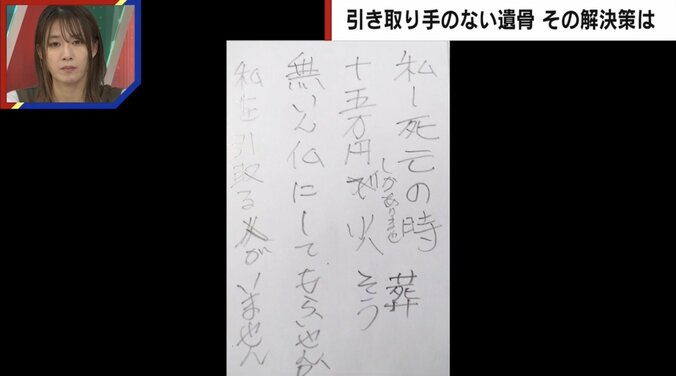 引き取り手のない遺骨 その解決策は
私し死亡の時
十五万円で火そう
しかありませ
葬
無いん仏にしてもらいせんか
私を引取る人がいません